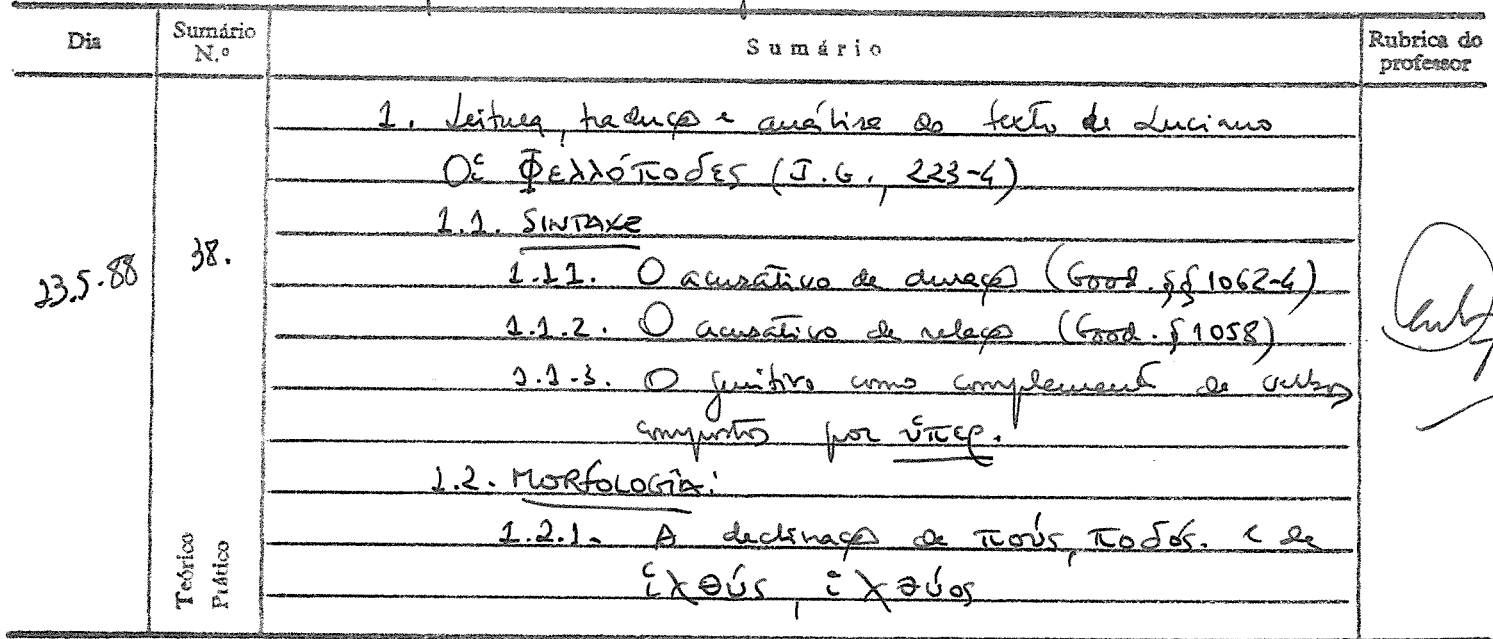 Dia
Sumário N.º
Sumário
Rubrica do professor
23.5.88
38.
Teórico
Prático
1. Leitura, tradução e análise do texto de Luciano
Οἱ Φελλόποδες (I.G., 223-4)
1.1. SINTAXE
1.1.1. O acusativo de duração (Good. §§ 1062-4)
1.1.2. O acusativo de relação (Good. § 1058)
1.1.3. O genitivo como complemento de verbos
compostos por ὑπερ.
1.2. MORFOLOGIA:
1.2.1. A declinação de πούς, ποδός. e de
ἰχθύς, ἰχθύος